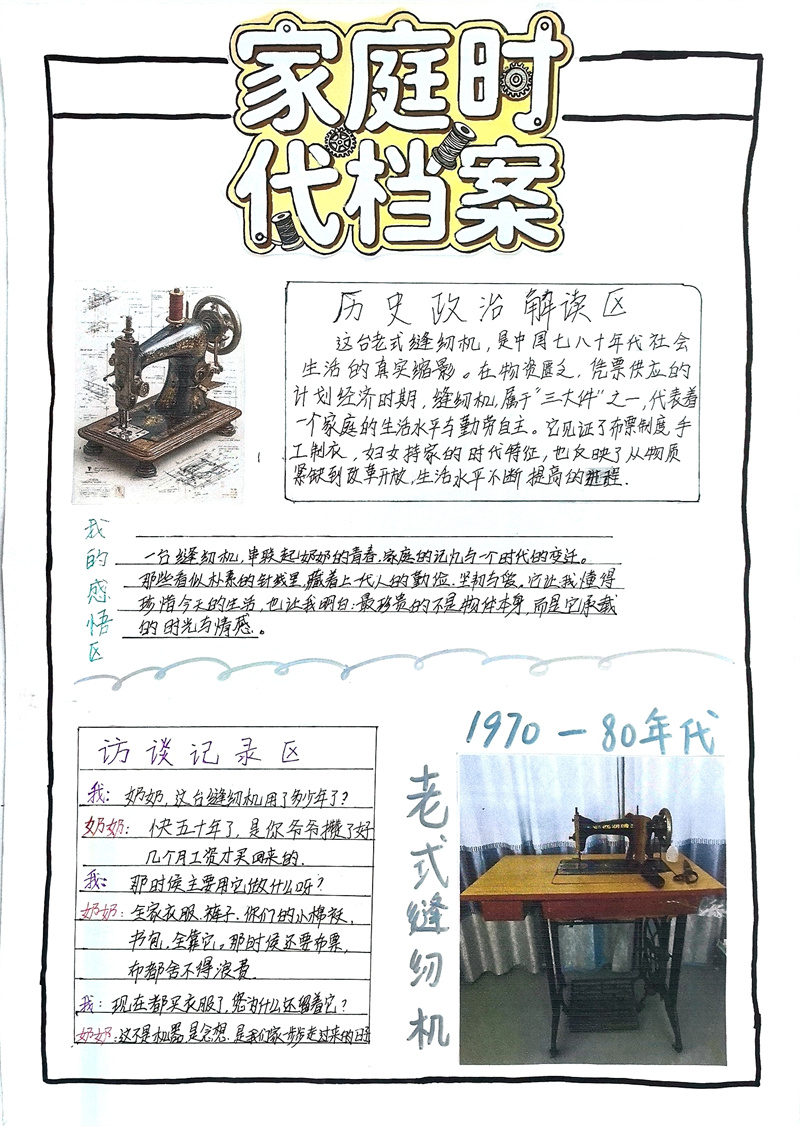 家庭时
代档案
历史政治解读区
这台老式缝纫机，是中国七八十年代社会
生活的真实缩影。在物资匮乏，凭票供应的
计划经济时期，缝纫机，属于“三大件”之一，代表着
一个家庭的生活水平与勤劳自主。它见证了布票制度，手
工制衣，妇女持家的时代特征，也反映了从物质
紧缺到改革开放，生活水平不断提高的进程.
我的感悟区
一台缝纫机，串联起奶奶的青春、家庭的记忆与一个时代的变迁。
那些看似朴素的针线里，藏着上一代人的勤俭、坚韧与爱。它让我懂得
珍惜今天的生活，也让我明白：最珍贵的不是物件本身，而是它承载
的时光与情感。
1970-80年代
老式缝纫机
访谈记录区
我：奶奶，这台缝纫机用了多少年了？
奶奶：快五十年了，是你爷爷攒了好
几个月工资才买回来的.
我：那时候主要用它做什么呀？
奶奶：全家衣服、裤子、你们的小棉袄、
书包，全靠它。那时候还要布票，
布都舍不得浪费.
我：现在都买衣服了，您为什么还留着它？
奶奶：这不是机器，是念想，是我们家一步步走过来的日子